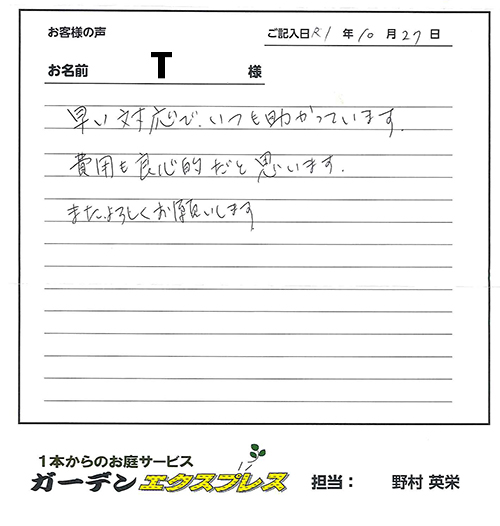 お客様の声
ご記入日 R1 年 10 月 27 日
お名前 T 様
早い対応で、いつも助かっています。
費用も良心的だと思います。
また、よろしくお願いします
1本からのお庭サービス
ガーデンエクスプレス 担当： 野村 英栄